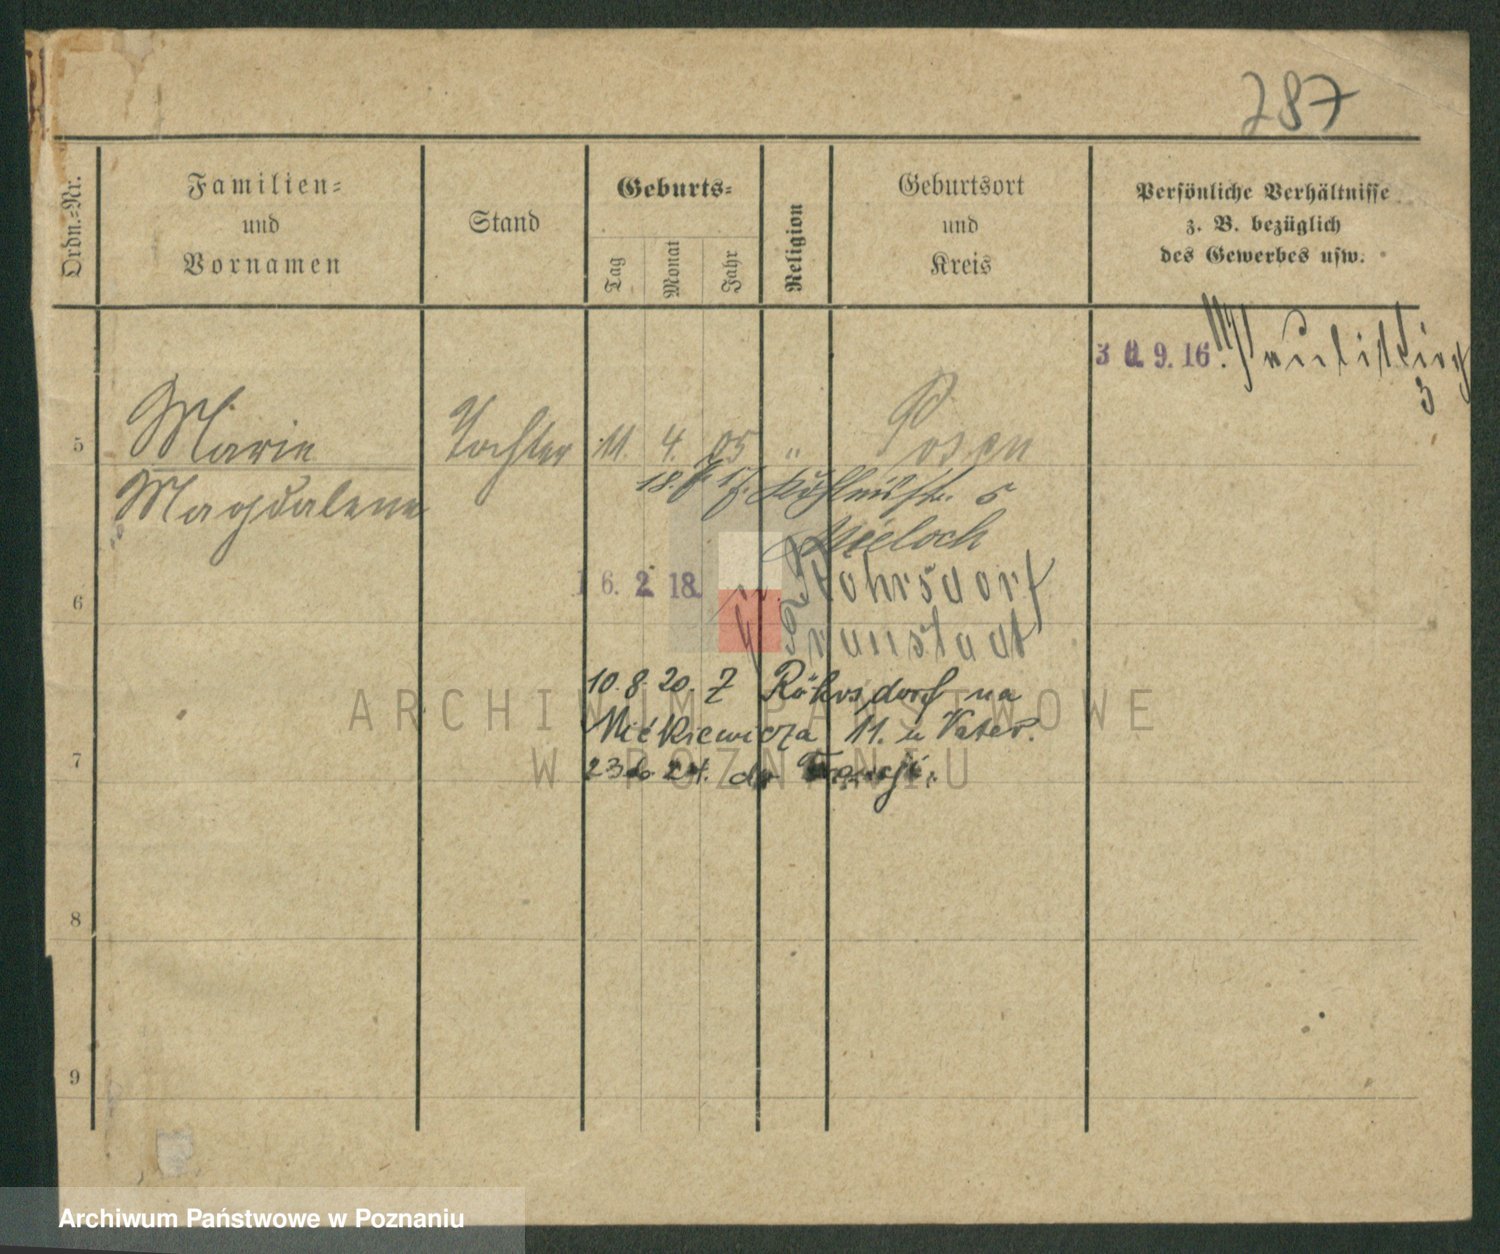 287
Ordn.-Nr.
Familien-
und
Vornamen
Stand
Geburts-
Tag
Monat
Jahr
Religion
Geburtsort
und
Kreis
Persönliche Verhältnisse
z. B. bezüglich
des Gewerbes usw.
30. 9. 16.
5 Marie Tochter 11. 4. 05 " Posen
Magdalene
18. 17. 5
Mieloch
6 16. 2. 18. Röhrsdorf
Fraustadt
10. 8. 20. Z Röhrsdorf na
Mickiewicza 11. u Vater.
7 24.
8
9
ARCHIWUM PAŃSTWOWE
W POZNANIU
Archiwum Państwowe w Poznaniu